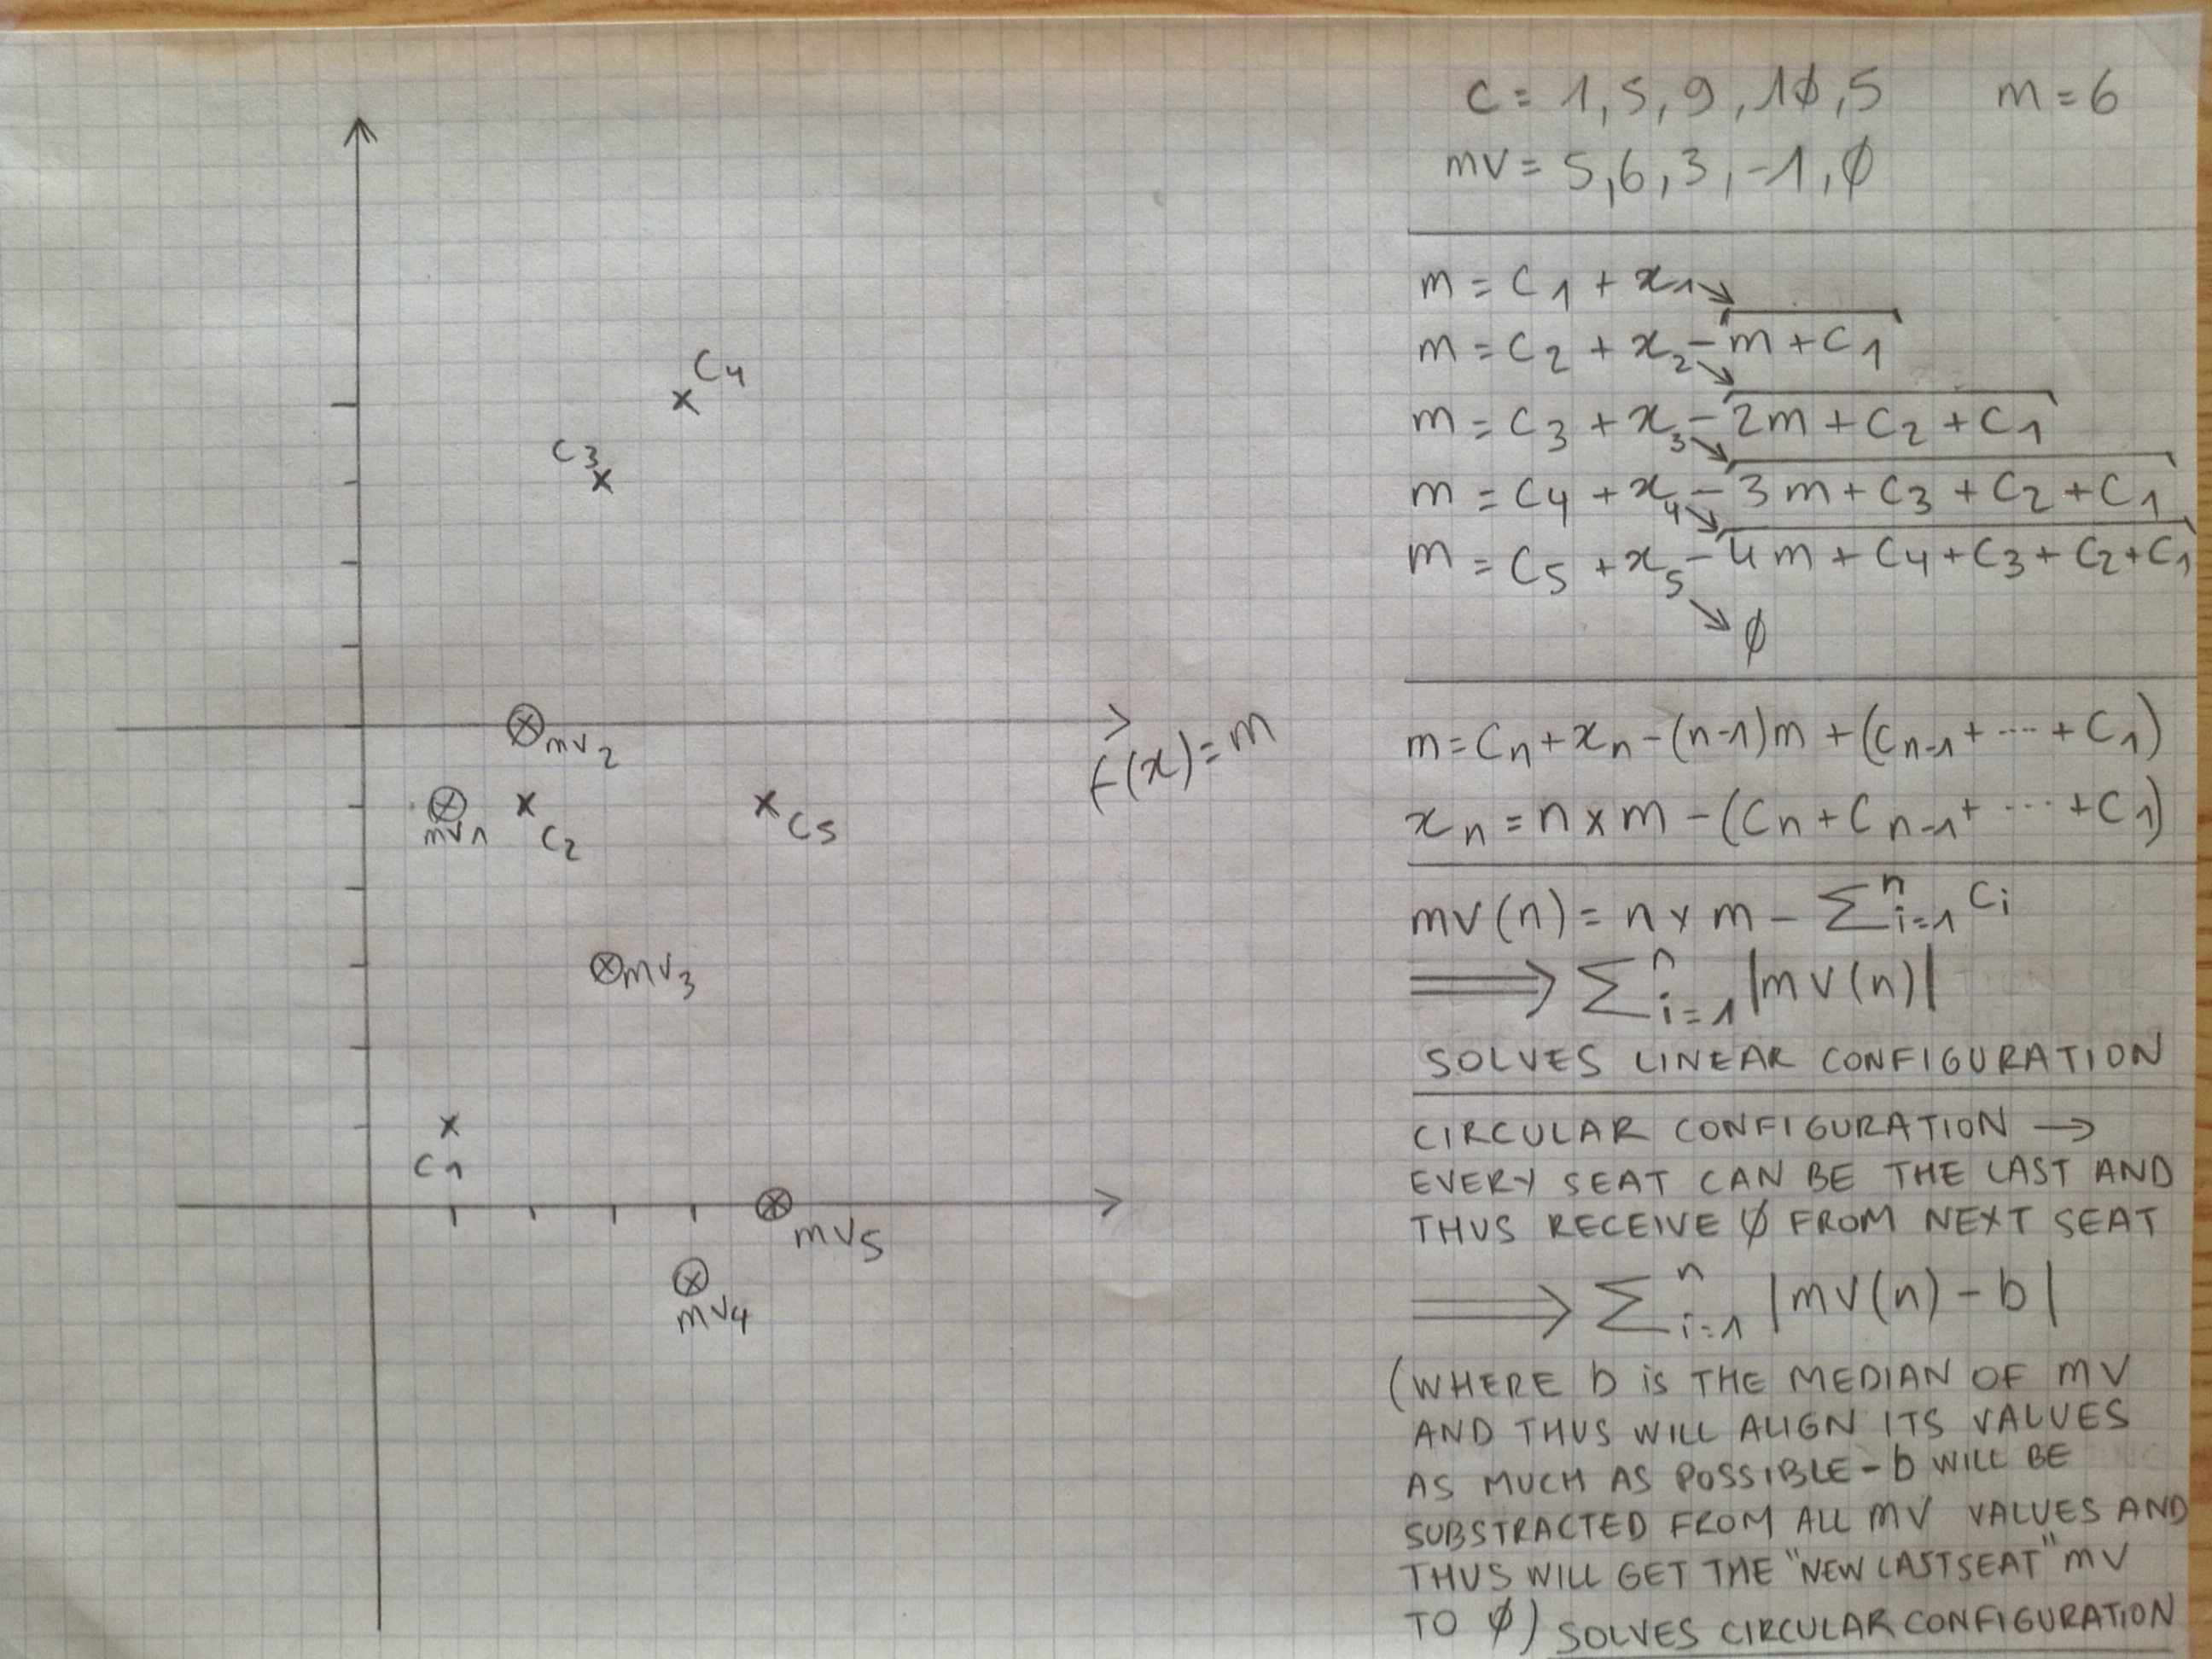 C4
C3
f(x)=m
mv2
mv1
C2
C5
mv3
C1
mv5
mv4
C = 1,5,9,1∅,5 m=6
mv = 5,6,3,-1,∅
m = C1 + x1
m = C2 + x2 - m + C1
m = C3 + x3 - 2m + C2 + C1
m = C4 + x4 - 3m + C3 + C2 + C1
m = C5 + x5 - 4m + C4 + C3 + C2 + C1
∅
m = Cn + xn - (n-1)m + (Cn-1 + ... + C1)
xn = n × m - (Cn + Cn-1 + ... + C1)
mv(n) = n × m - ∑ⁿi=1 Ci
⟹ ∑ⁿi=1 |mv(n)|
SOLVES LINEAR CONFIGURATION
CIRCULAR CONFIGURATION →
EVERY SEAT CAN BE THE LAST AND
THUS RECEIVE ∅ FROM NEXT SEAT
⟹ ∑ⁿi=1 |mv(n) - b|
(WHERE b is THE MEDIAN OF MV
AND THUS WILL ALIGN ITS VALUES
AS MUCH AS POSSIBLE - b WILL BE
SUBSTRACTED FROM ALL MV VALUES AND
THUS WILL GET THE "NEW LAST SEAT" MV
TO ∅) SOLVES CIRCULAR CONFIGURATION